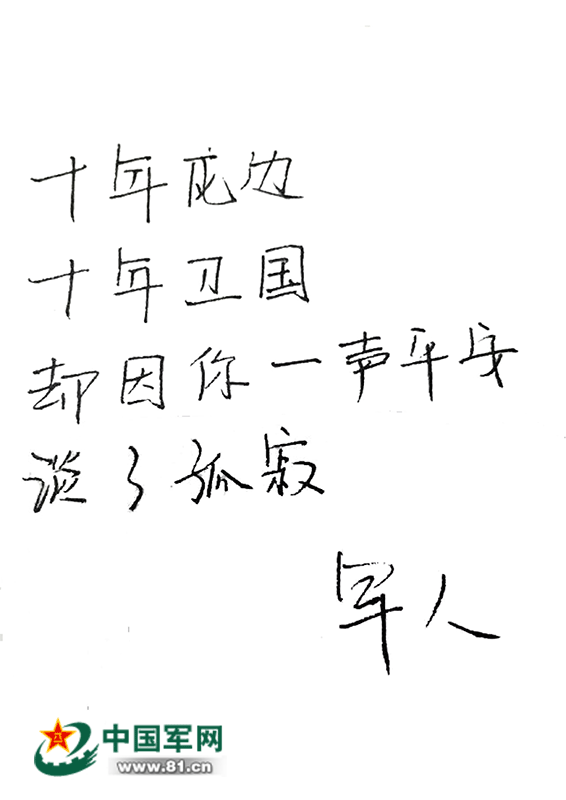 十年戍边
十年卫国
却因你一声平安
淡了孤寂
军人
中国军网
www.81.cn